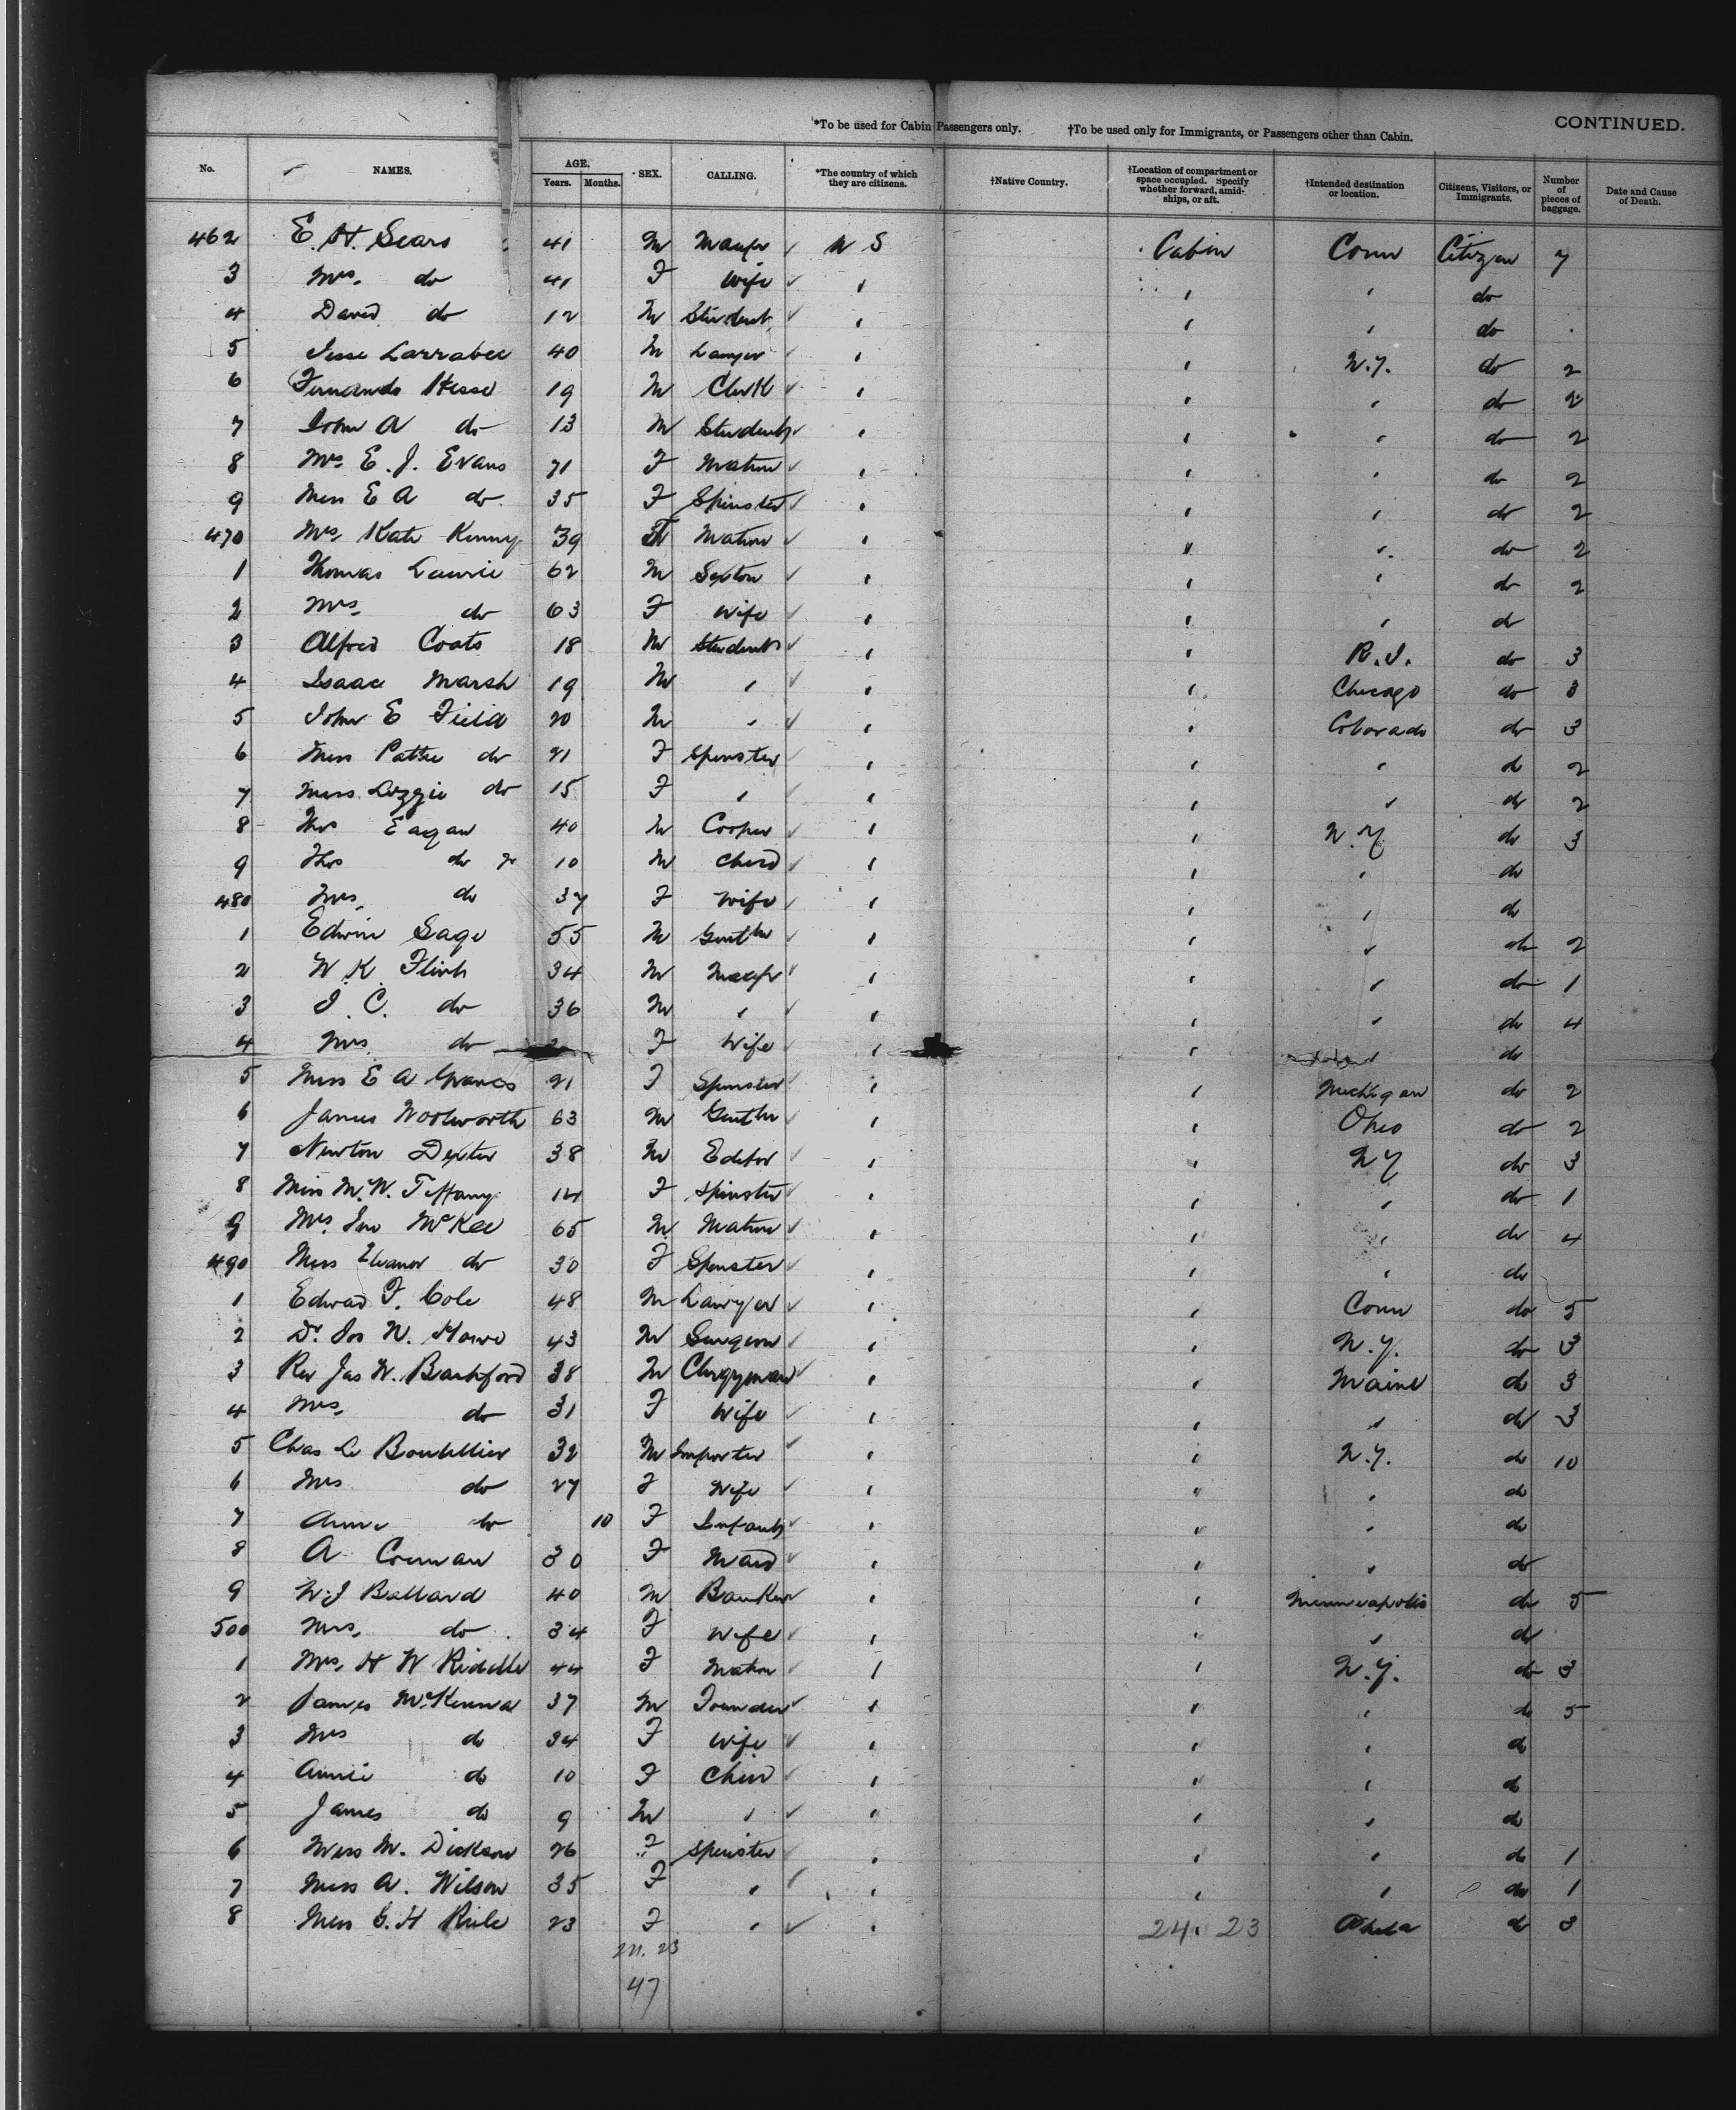 CONTINUED.
*To be used for Cabin Passengers only. †To be used only for Immigrants, or Passengers other than Cabin.
No. NAMES. AGE. Years. Months. SEX. CALLING. *The country of which they are citizens. †Native Country. †Location of compartment or space occupied. Specify whether forward, amid-ships, or aft. †Intended destination or location. Citizens, Visitors, or Immigrants. Number of pieces of baggage. Date and Cause of Death.
462 E. H. Sears 41 M Manfr U S Cabin Conn Citizen 7
3 Mrs. do 41 F Wife " " " do
4 David do 12 M Student " " " do
5 Jesse Larrabee 40 M Lawyer " " N.Y. do 2
6 Fernando Hesse 19 M Clerk " " " do 2
7 John A do 13 M Student " " " do 2
8 Mrs E. J. Evans 71 F Matron " " " do 2
9 Miss E A do 35 F Spinster " " " do 2
470 Mrs. Kate Kenny 39 F Matron " " " do 2
1 Thomas Laurie 62 M Sexton " " " do 2
2 Mrs. do 63 F Wife " " " do
3 Alfred Coats 18 M Student " " R.I. do 3
4 Isaac Marsh 19 M " " " Chicago do 3
5 John E Field 20 M " " " Colorado do 3
6 Miss Pattie do 21 F Spinster " " " do 2
7 Miss Lizzie do 15 F " " " " do 2
8 Thos Eagan 40 M Cooper " " N.Y. do 3
9 Thos do Jr 10 M Child " " " do
480 Mrs. do 37 F Wife " " " do
1 Edwin Sage 55 M Gentln " " " do 2
2 W. K. Flint 34 M Manfr " " " do 1
3 J. C. do 36 M " " " " do 4
4 Mrs. do F Wife " " " do
5 Miss E A Graves 21 F Spinster " " Michigan do 2
6 James Woolworth 63 M Gentln " " Ohio do 2
7 Newton Dexter 38 M Editor " " N Y do 3
8 Miss M. W. Tiffany 14 F Spinster " " " do 1
9 Mrs. Jno McKee 65 M Matron " " " do 4
490 Miss Eleanor do 30 F Spinster " " " do
1 Edward F. Cole 48 M Lawyer " " Conn do 5
2 Dr. Jos W. Howe 43 M Surgeon " " N.Y. do 3
3 Rev Jas W. Bashford 38 M Clergyman " " Maine do 3
4 Mrs. do 31 F Wife " " " do 3
5 Chas Le Boutillier 32 M Importer " " N.Y. do 10
6 Mrs do 27 F Wife " " " do
7 Anna do 10 F Infant " " " do
8 A 30 F Maid " " " do
9 W J Ballard 40 M Banker " " Minneapolis do 5
500 Mrs. do 34 F Wife " " " do
1 Mrs. H W 44 F Matron " " N.Y. do 3
2 James McKenna 37 M Founder " " " do 5
3 Mrs do 34 F Wife " " " do
4 Annie do 10 F Child " " " do
5 James do 9 M " " " " do
6 Miss M. Dickson 26 F Spinster " " " do 1
7 Miss A. Wilson 35 F " " " " do 1
8 Miss G. H 23 F " " 24. 23 Phila do 3
24. 23
47